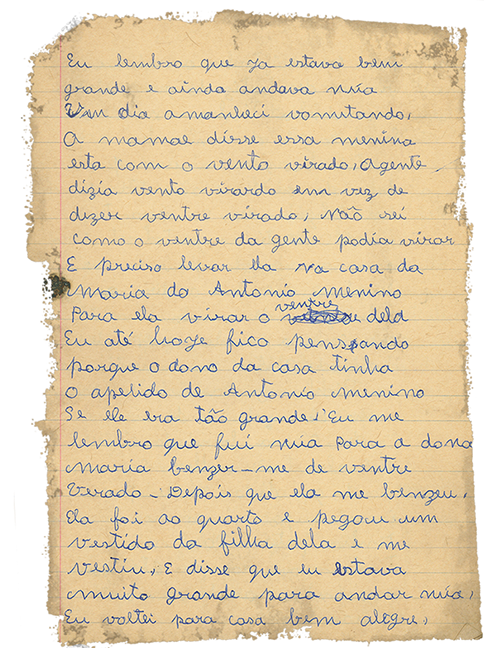 Eu lembro que ja estava bem
grande e ainda andava nua
Um dia amanheci vomitando,
A mamae disse essa menina
esta com o vento virado, Agente
dizia vento virardo em vez de
dizer ventre virado, Não sei
como o ventre da gente podia virar
E preciso levar Ela na casa da
Maria do Antonio menino
Para ela virar o ventre dela
Eu até hoze fico pensando
porque o dono da casa tinha
o apelido de Antonio menino
Se ele era tão grande, Eu me
lembro que fui nua para a dona
maria benzer-me de ventre
Virado - Depois que ela me benzeu,
Ela foi ao quarto e pegou um
vestido da filha dela e me
vestiu, E disse que eu estava
muito grande para andar nua,
Eu voltei para casa bem alegre,